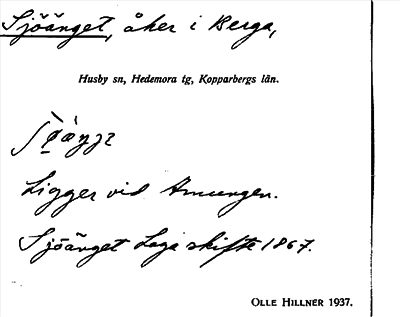 Sjöänget, åker i Berga,
Husby sn, Hedemora tg, Kopparbergs län.
Ligger vid Amungen.
Sjöänget Laga skifte 1867.
OLLE HILLNER 1937.